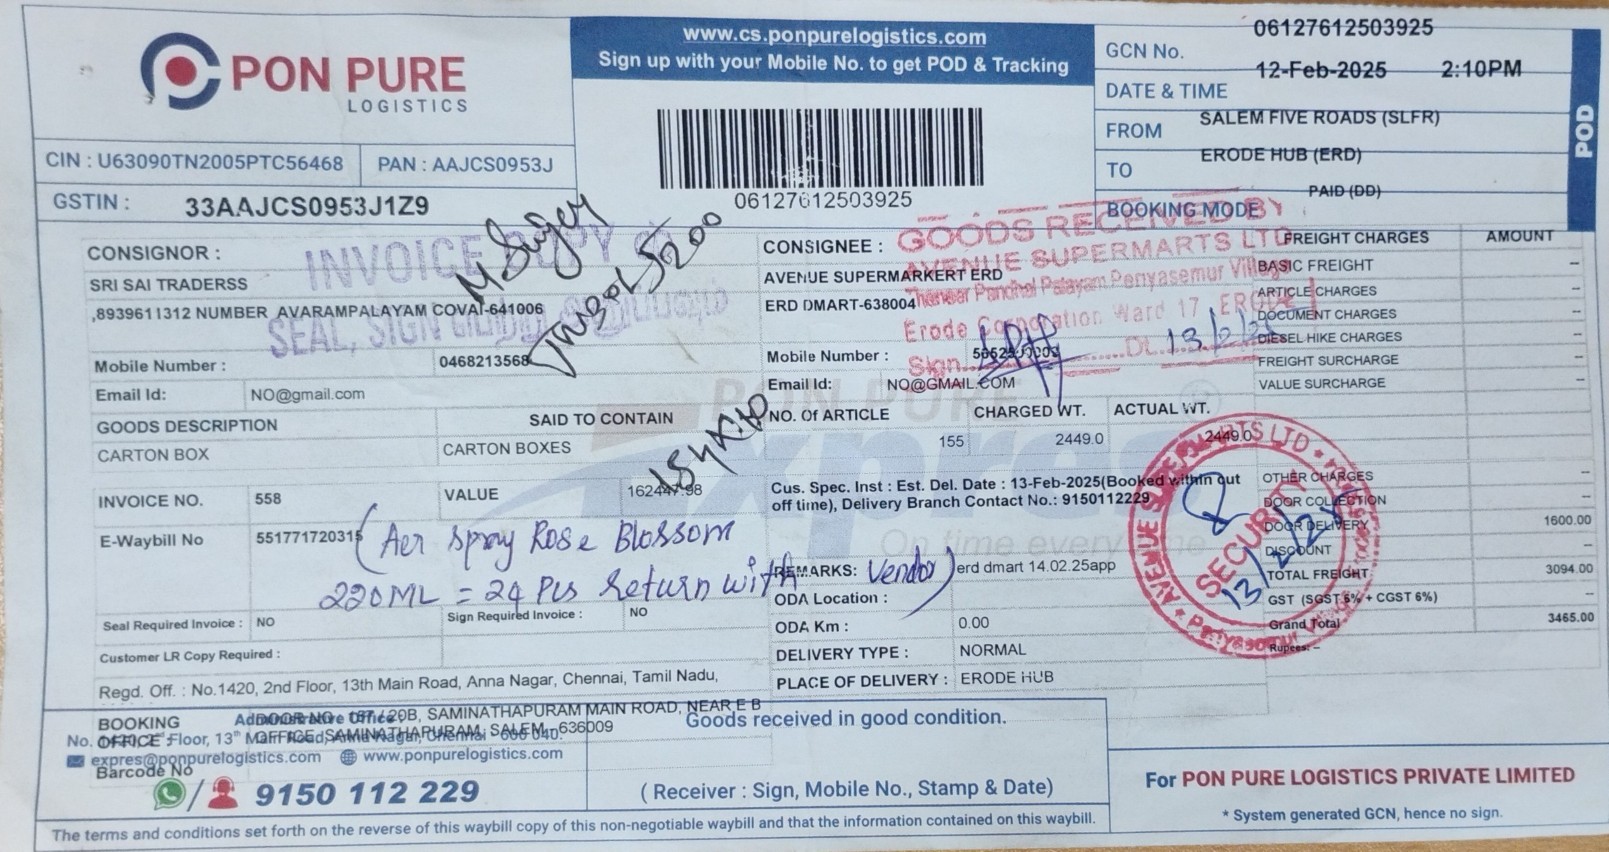 PON PURE
LOGISTICS
www.cs.ponpurelogistics.com
Sign up with your Mobile No. to get POD & Tracking
GCN No. 06127612503925
DATE & TIME 12-Feb-2025 2:10PM
FROM SALEM FIVE ROADS (SLFR)
TO ERODE HUB (ERD)
BOOKING MODE PAID (DD)
POD
CIN : U63090TN2005PTC56468 PAN : AAJCS0953J
GSTIN : 33AAJCS0953J1Z9
06127612503925
INVOICE COPY
SEAL, SIGN
CONSIGNOR :
SRI SAI TRADERSS
,8939611312 NUMBER AVARAMPALAYAM COVAI-641006
Mobile Number : 0468213568
Email Id: NO@gmail.com
GOODS DESCRIPTION SAID TO CONTAIN
CARTON BOX CARTON BOXES
INVOICE NO. 558 VALUE 162447.98
E-Waybill No 551771720315
(Aer Spray Rose Blossom
220ML = 24 Pcs Return with Vendor)
Seal Required Invoice : NO Sign Required Invoice : NO
Customer LR Copy Required :
Regd. Off. : No.1420, 2nd Floor, 13th Main Road, Anna Nagar, Chennai, Tamil Nadu,
CONSIGNEE :
AVENUE SUPERMARKERT ERD
ERD DMART-638004
Mobile Number :
Email Id: NO@GMAIL.COM
GOODS RECEIVED BY
AVENUE SUPERMARTS LTD
Thaneer Pandhal Palayam Periyasemur Village
Erode Corporation Ward 17, ERODE
Sign............Dt. 13/2/25
NO. Of ARTICLE CHARGED WT. ACTUAL WT.
155 2449.0 2449.0
PON PURE
Xpres
On time every time
Cus. Spec. Inst : Est. Del. Date : 13-Feb-2025(Booked within cut
off time), Delivery Branch Contact No.: 9150112229
REMARKS: erd dmart 14.02.25app
ODA Location :
ODA Km : 0.00
DELIVERY TYPE : NORMAL
PLACE OF DELIVERY : ERODE HUB
FREIGHT CHARGES AMOUNT
BASIC FREIGHT --
ARTICLE CHARGES --
DOCUMENT CHARGES --
DIESEL HIKE CHARGES --
FREIGHT SURCHARGE --
VALUE SURCHARGE --
OTHER CHARGES --
DOOR COLLECTION --
DOOR DELIVERY 1600.00
DISCOUNT --
TOTAL FREIGHT 3094.00
GST (SGST 6% + CGST 6%) --
Grand Total 3465.00
Rupees: --
AVENUE SUPERMARTS LTD
SECURITY
BOOKING OFFICE : DOOR NO. 157 / 20B, SAMINATHAPURAM MAIN ROAD, NEAR E B
OFFICE, SAMINATHAPURAM, SALEM - 636009
Administrative Office :
expres@ponpurelogistics.com www.ponpurelogistics.com
Barcode No
9150 112 229
Goods received in good condition.
( Receiver : Sign, Mobile No., Stamp & Date)
For PON PURE LOGISTICS PRIVATE LIMITED
* System generated GCN, hence no sign.
The terms and conditions set forth on the reverse of this waybill copy of this non-negotiable waybill and that the information contained on this waybill.